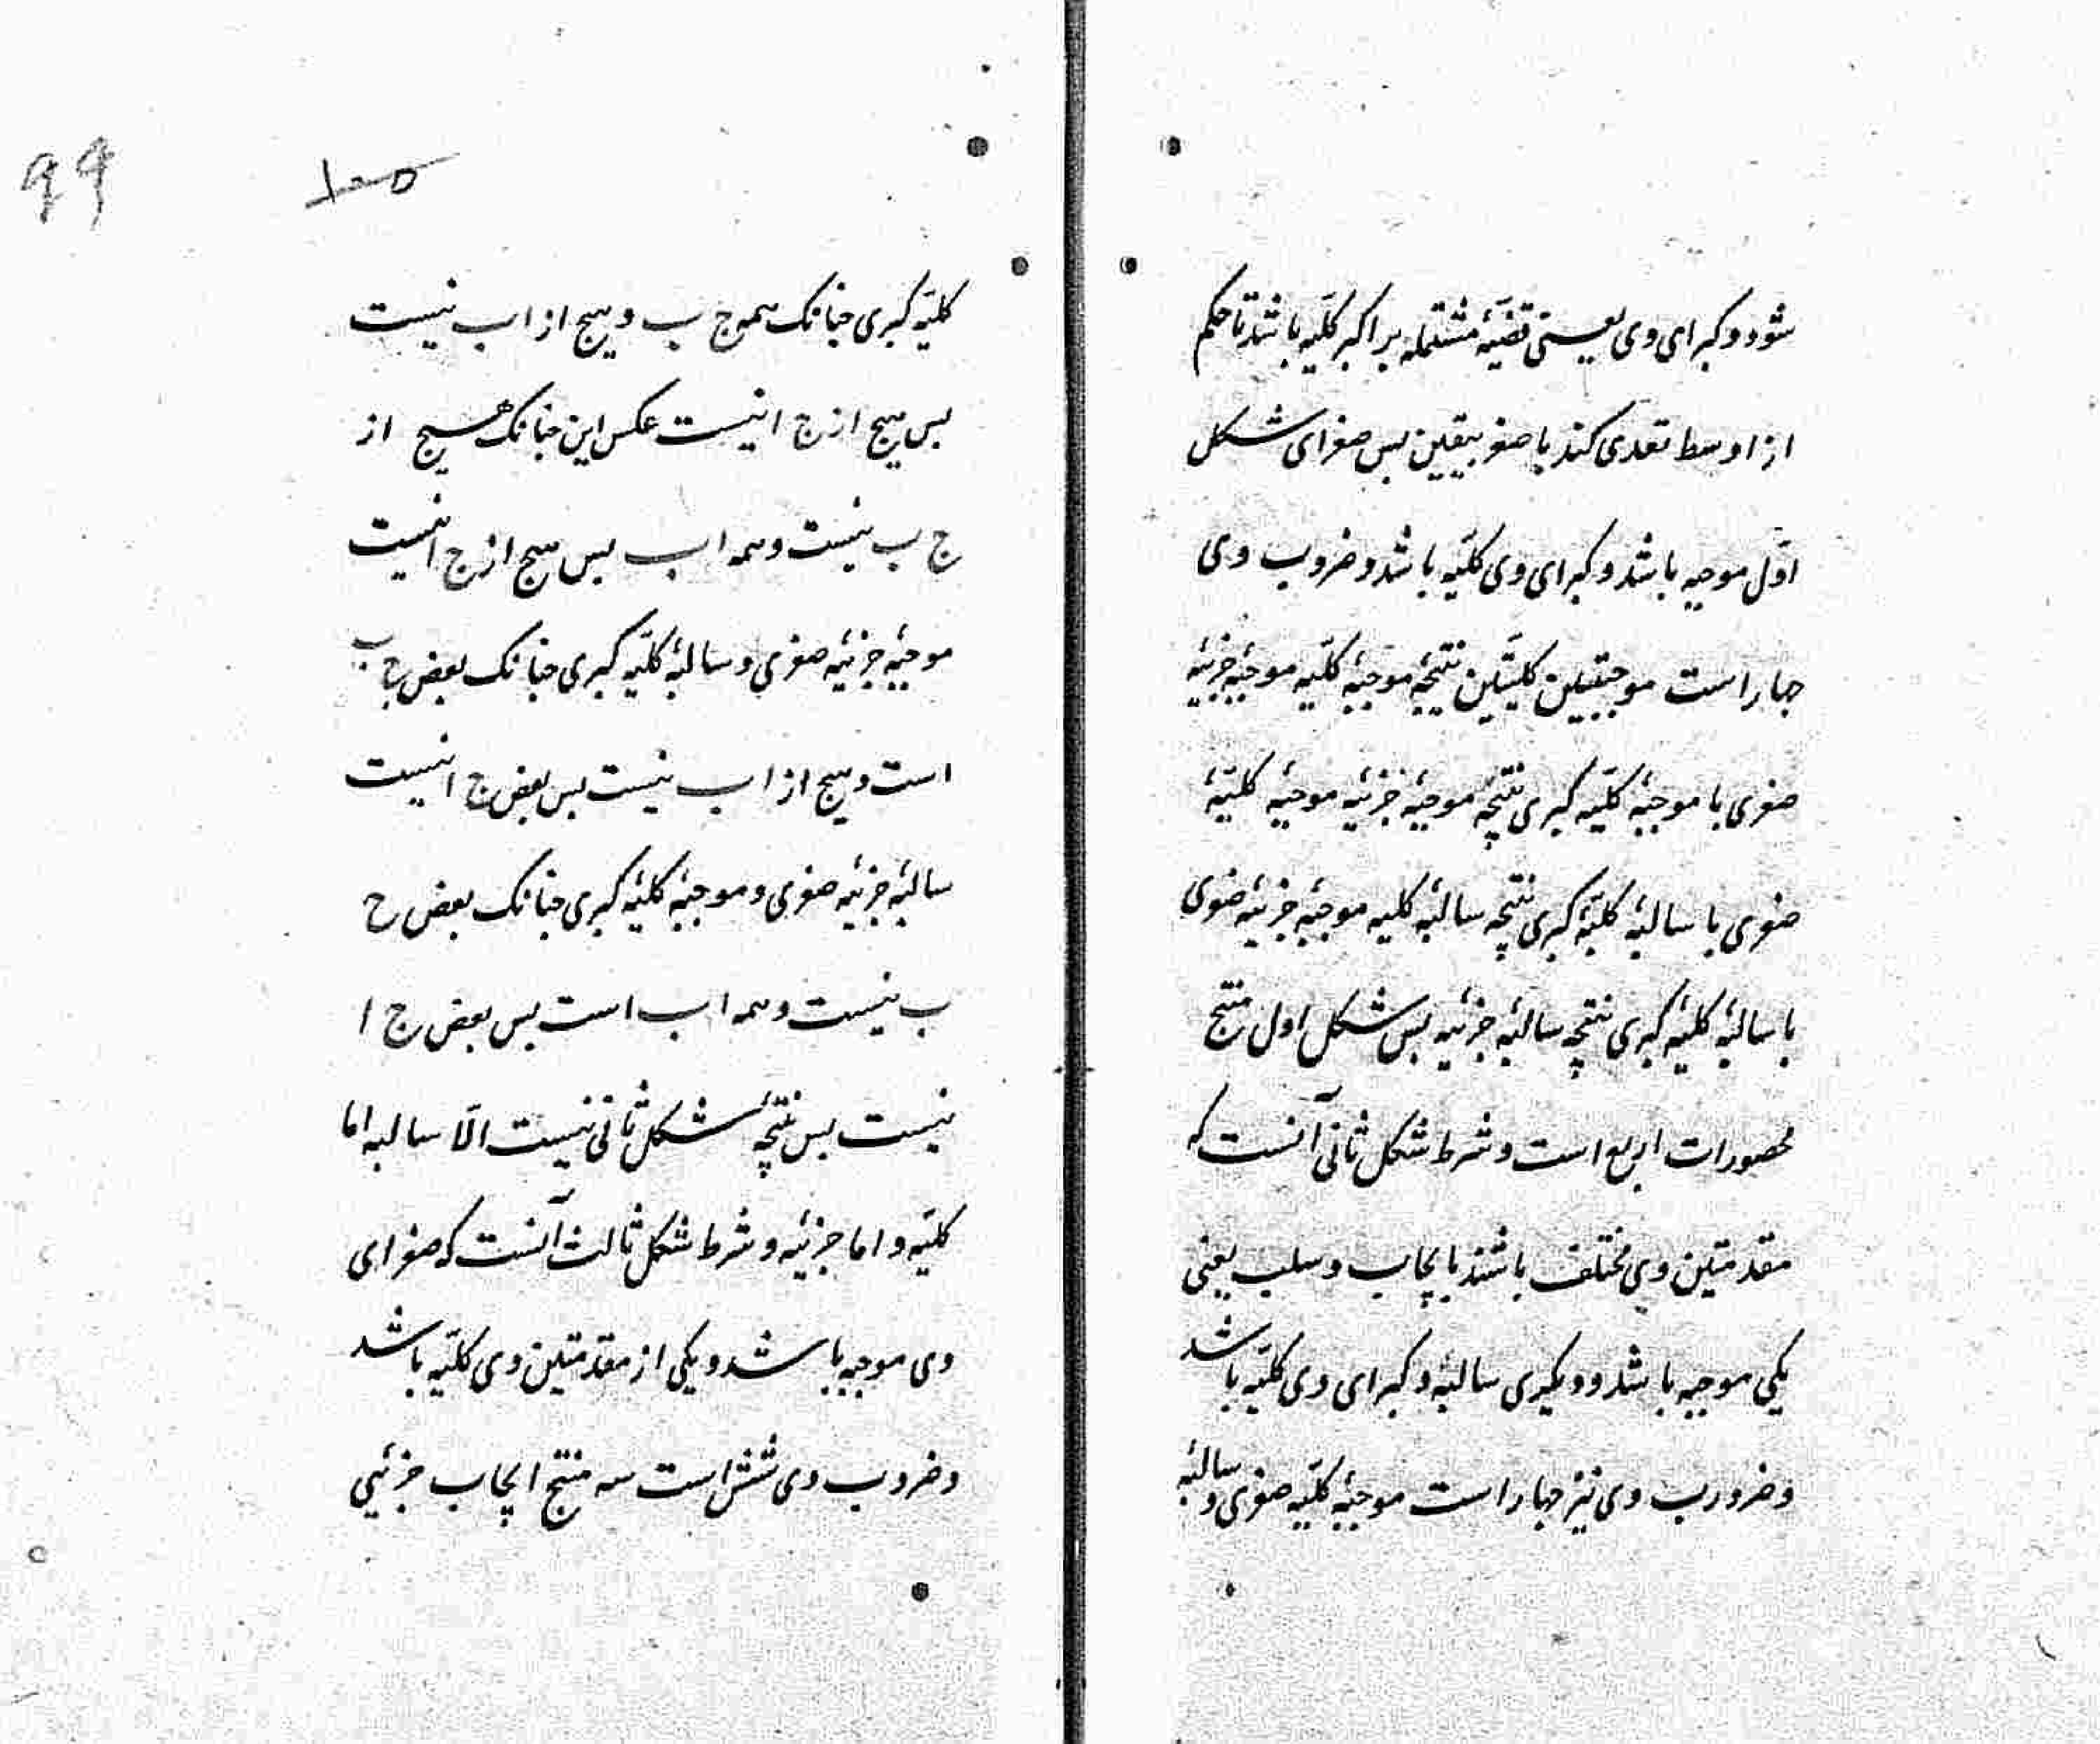 شود و کبرای وی یعنی قضیّهٔ مشتمله بر اکبر کلیّه باشد تا حکم
از اوسط تعدی کند با صغر بیقین بس صغرای شکل
اوّل موجبه باشد و کبرای وی کلیّه باشد و ضروب وی
جهار است موجبتین کلیتین نتیجهٔ موجبهٔ کلیّه موجبهٔ جزئیه
صغری با موجبهٔ کلیّه کبری نتیجه موجبهٔ جزئیه موجبهٔ کلیّهٔ
صغری با سالبهٔ کلیّهٔ کبری نتیجه سالبهٔ کلیه موجبهٔ جزئیهٔ صغری
با سالبهٔ کلیهٔ کبری نتیجه سالبهٔ جزئیه بس شکل اول منتج
محصورات اربع است و شرط شکل ثانی آنست که
مقدمتین وی مختلف باشند بایجاب و سلب یعنی
یکی موجبه باشد و دیکری سالبهٔ و کبرای وی کلیّه باشد
و ضروب وی نیز جهار است موجبهٔ کلیّه صغری و سالبهٔ
99
کلیّه کبری جنانک همه ج ب و هیج از ا ب نیست
بس هیج از ج ا نیست عکس این جنانک هیج از
ج ب نیست و همه ا ب بس هیج از ج ا نیست
موجبهٔ جزئیه صغری و سالبهٔ کلیّه کبری جنانک بعض ج ب
است و هیج از ا ب نیست بس بعض ج ا نیست
سالبهٔ جزئیه صغری و موجبهٔ کلیّه کبری جنانک بعض ج
ب نیست و همه ا ب است بس بعض ج ا
نیست بس نتیجهٔ شکل ثانی نیست الّا سالبه اما
کلیّه و اما جزئیه و شرط شکل ثالث آنست که صغرای
وی موجبه باشد و یکی از مقدمتین وی کلیّه باشد
و ضروب وی شش است سه منتج ایجاب جزئی